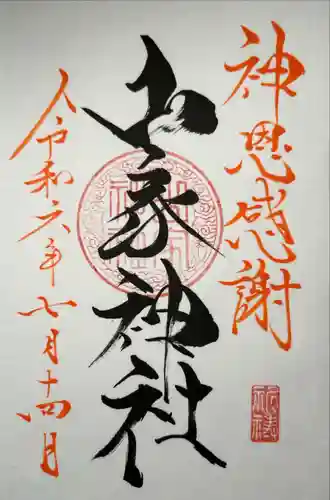 神恩感謝
山家神社
令和六年七月十四日